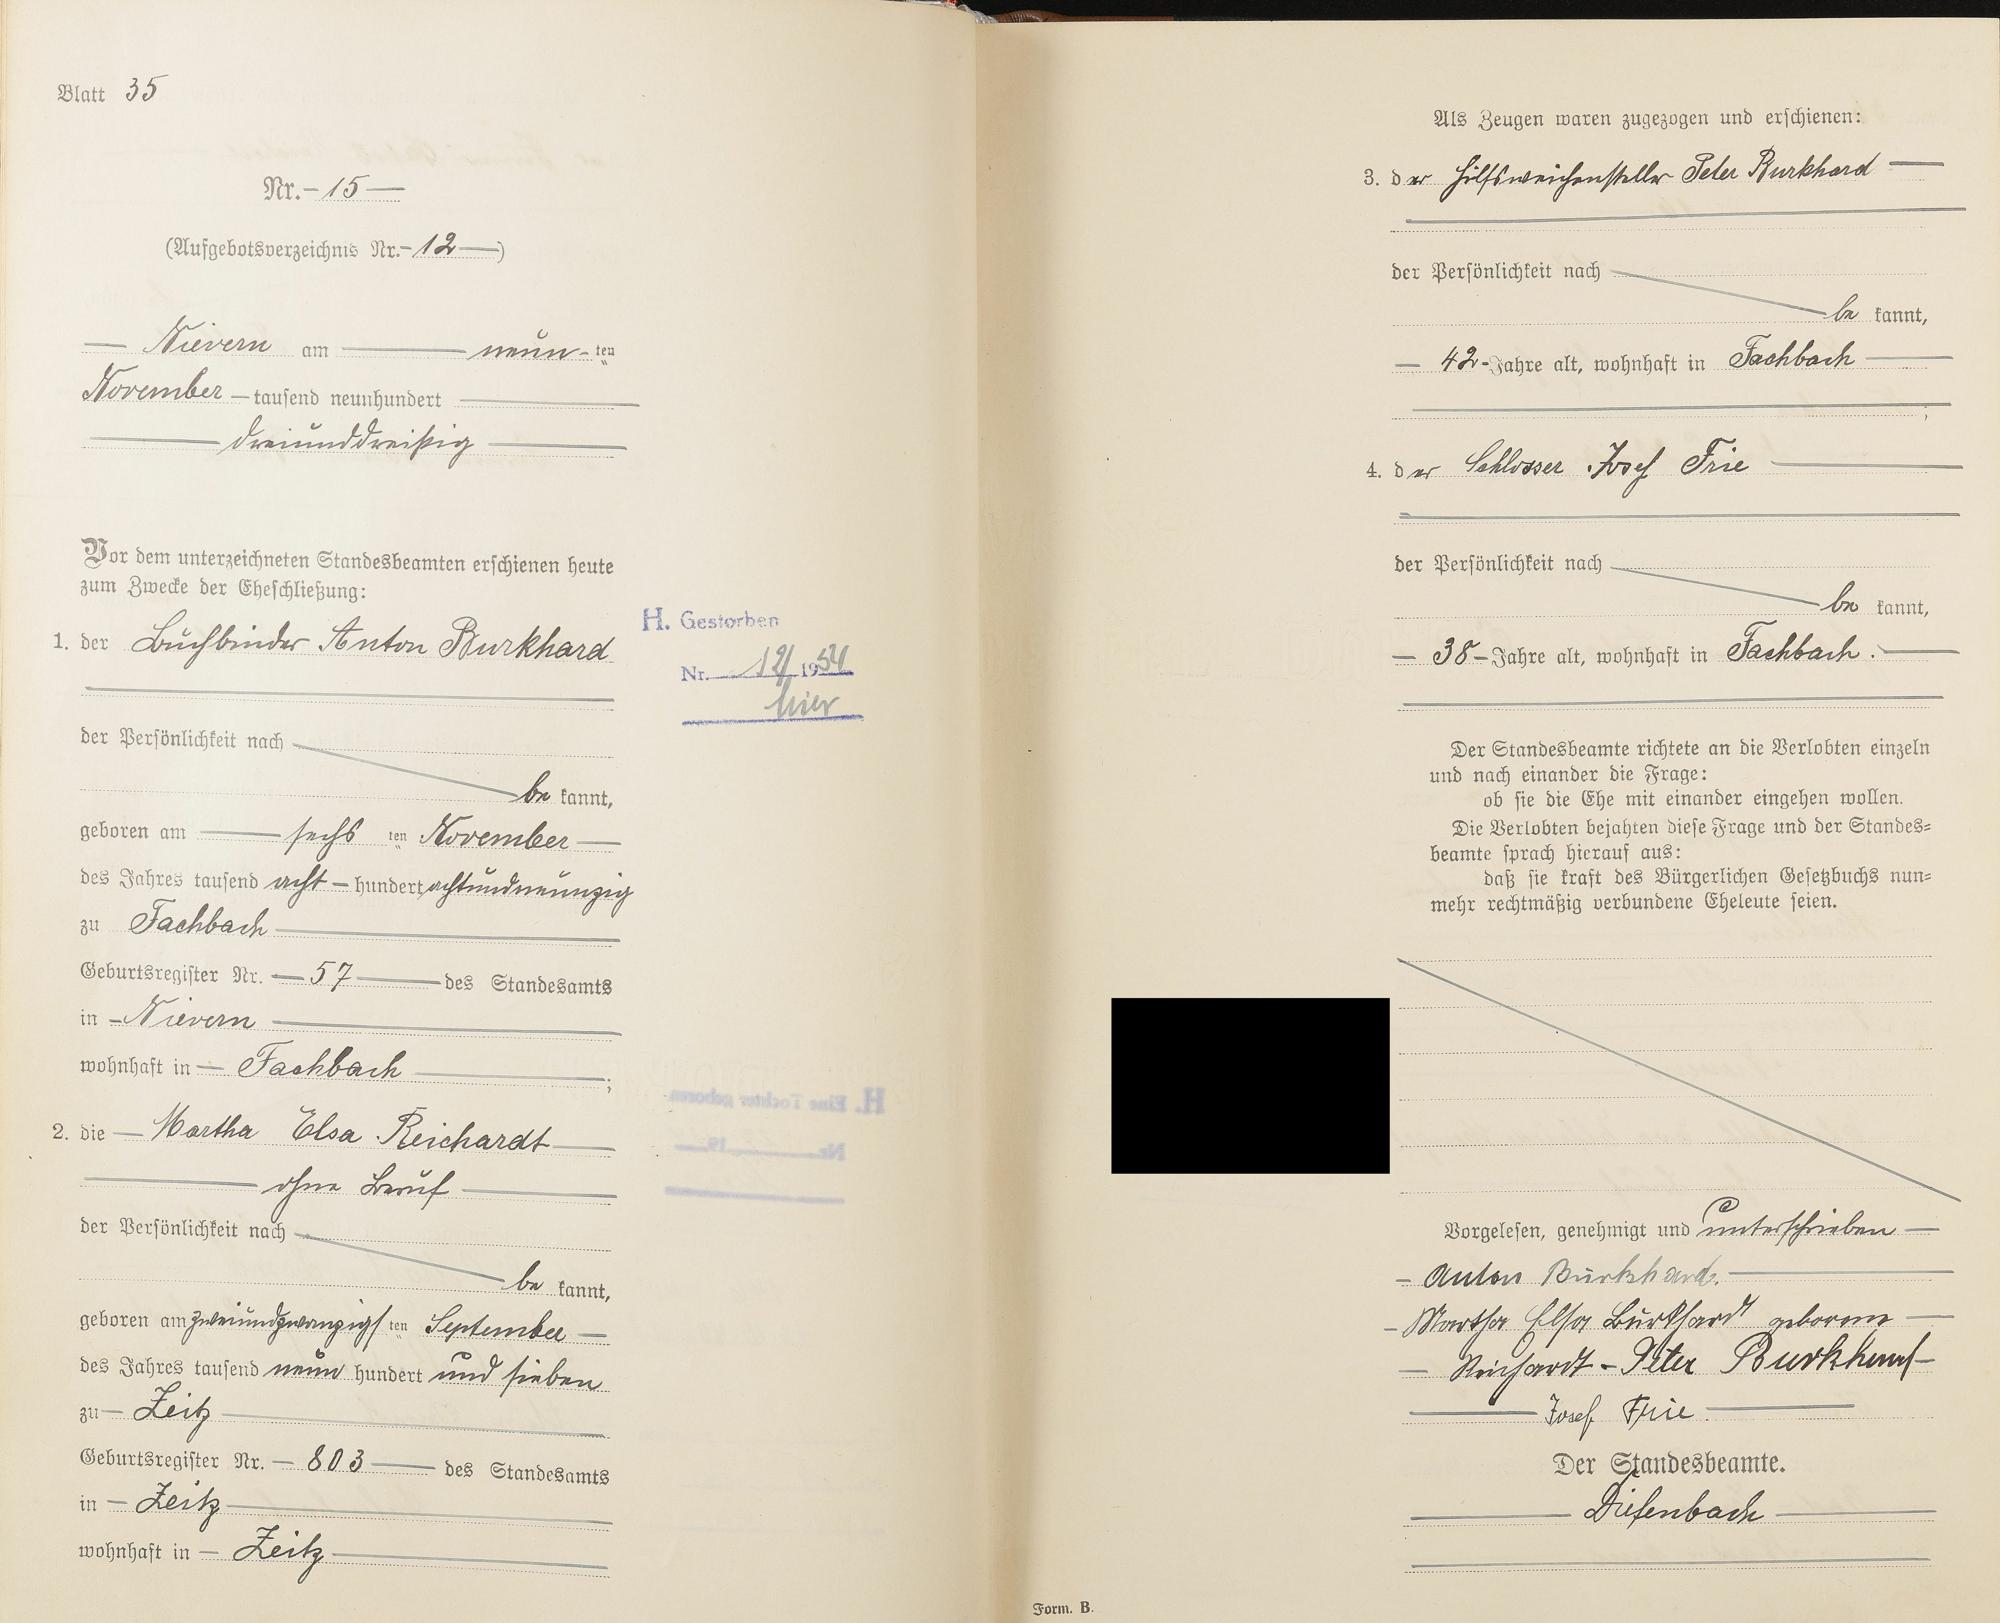 Blatt 35
Nr. 15
(Aufgebotsverzeichnis Nr. 12)
Nievern am neunten
November tausend neunhundert
dreiunddreißig
Vor dem unterzeichneten Standesbeamten erschienen heute
zum Zwecke der Eheschließung:
1. der Buchbinder Anton Burkhard
der Persönlichkeit nach
bekannt,
geboren am sechsten November
des Jahres tausend achthundert achtundneunzig
zu Fachbach
Geburtsregister Nr. 57 des Standesamts
in Nievern
wohnhaft in Fachbach;
2. die Martha Elsa Reichardt
ohne Beruf
der Persönlichkeit nach
bekannt,
geboren am zweiundzwanzigsten September
des Jahres tausend neunhundert und sieben
zu Zeitz
Geburtsregister Nr. 803 des Standesamts
in Zeitz
wohnhaft in Zeitz
H. Gestorben
Nr. 12/1954
hier
H. Eine Tochter geboren
Nr. 19
Als Zeugen waren zugezogen und erschienen:
3. der Hilfsweichensteller Peter Burkhard
der Persönlichkeit nach
bekannt,
42 Jahre alt, wohnhaft in Fachbach
;
4. der Schlosser Josef Frie
der Persönlichkeit nach
bekannt,
38 Jahre alt, wohnhaft in Fachbach.
Der Standesbeamte richtete an die Verlobten einzeln
und nach einander die Frage:
ob sie die Ehe mit einander eingehen wollen.
Die Verlobten bejahten diese Frage und der Standes=
beamte sprach hierauf aus:
daß sie kraft des Bürgerlichen Gesetzbuchs nun=
mehr rechtmäßig verbundene Eheleute seien.
Vorgelesen, genehmigt und unterschrieben
Anton Burkhard.
Martha Elsa Burkhardt geborene
Reichardt - Peter Burkhard
Josef Frie.
Der Standesbeamte.
Diefenbach
Form. B.